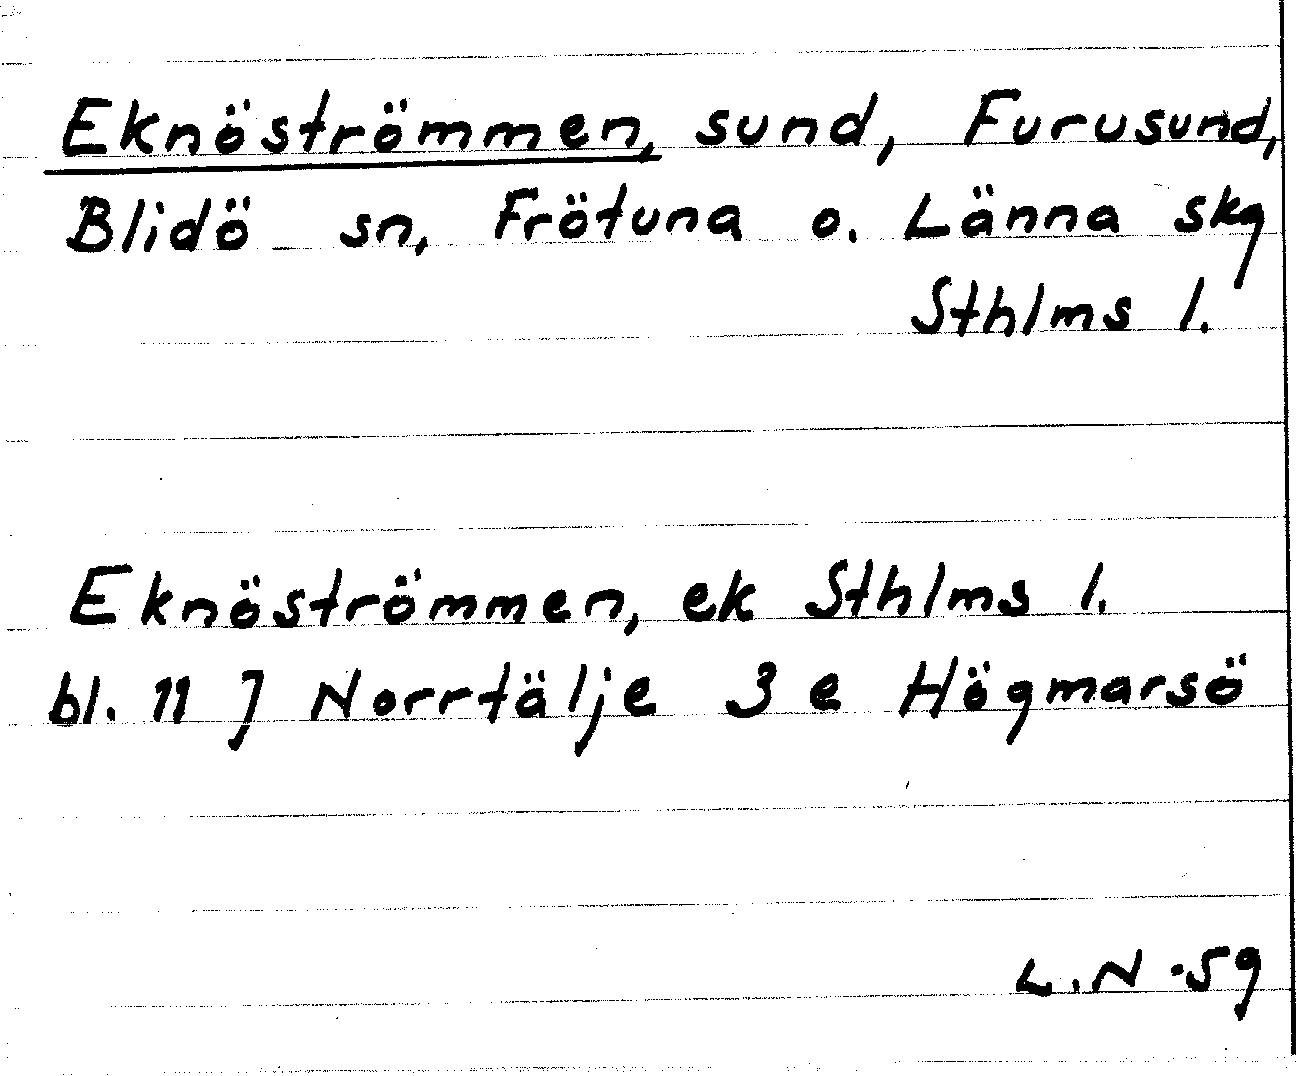 Eknöströmmen, sund, Furusund,
Blidö sn, Frötuna o. Länna skg
Sthlms l.
Eknöströmmen, ek Sthlms l.
bl. 11 J Norrtälje 3 e Högmarsö
L.N -59